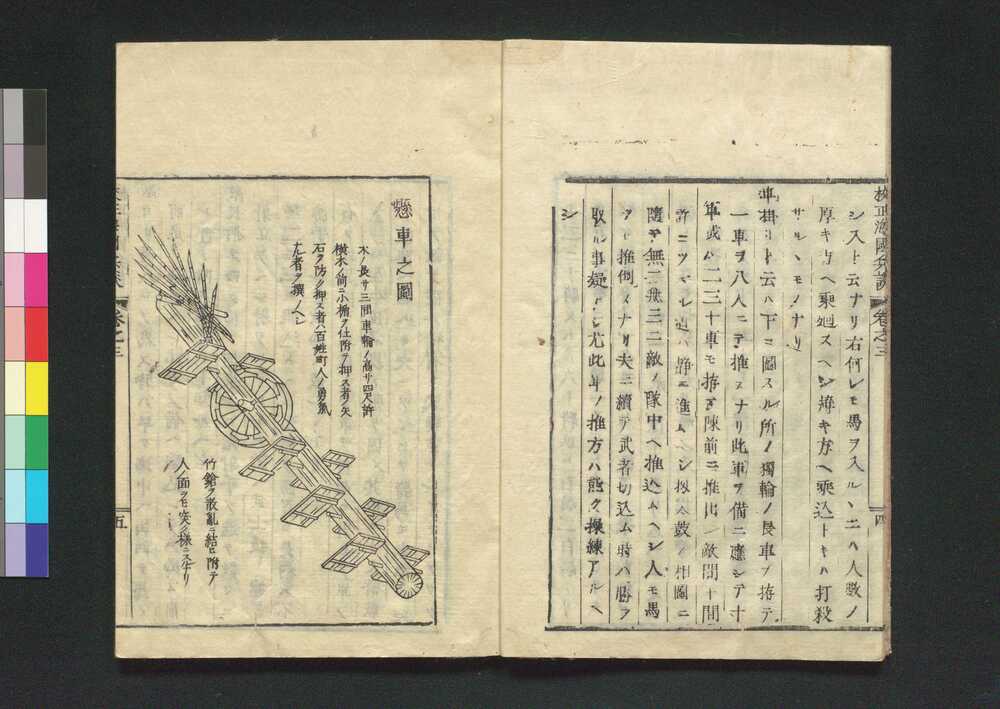 校正海國兵談 卷之三
四
シスト云ナリ右何レモ馬ヲスルヽニハ人數ノ
厚キ所ヘ乘廻スヘシ薄キ方ヘ乘込トキハ打殺
サルヽモノナリ
車掛リト云ハ下ニ圖スル所ノ獨輪ノ長車ヲ拵テ
一車ヲ八人ニテ推スナリ此車ヲ備ニ應シテ十
車或ハ二三十車モ拵テ陳前ニ推出シ敵間十間
許ニツマル迄ハ静ニ進ムヘシ扨太鼓ノ相圖ニ
隨テ無二無三ニ敵ノ隊中ヘ推込ムヘシ人モ馬
モ推倒スナリ夫ニ續テ武者切込ム時ハ勝ヲ
取ル事疑ナシ尤此車ノ推方ハ熊ク操練アルヘ
シ
懸車之圖
木ノ長サ三間車輪ノ高サ四尺許
横木ノ前ニ小楯ヲ仕附テ押ス者ノ矢
石ヲ防ク押ス者ハ百姓町人ノ勇氣
ナル者ヲ撰ヘシ
竹鎗ヲ散亂ニ結ヒ附テ
人ノ面ヲモ突ク様ニスルナリ
卷之三
五